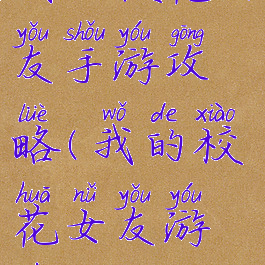 yǒu shǒu yóu gōng
友手游攻
lüè wǒ de xiào
略(我的校
huā nǚ yǒu yóu
花女友游